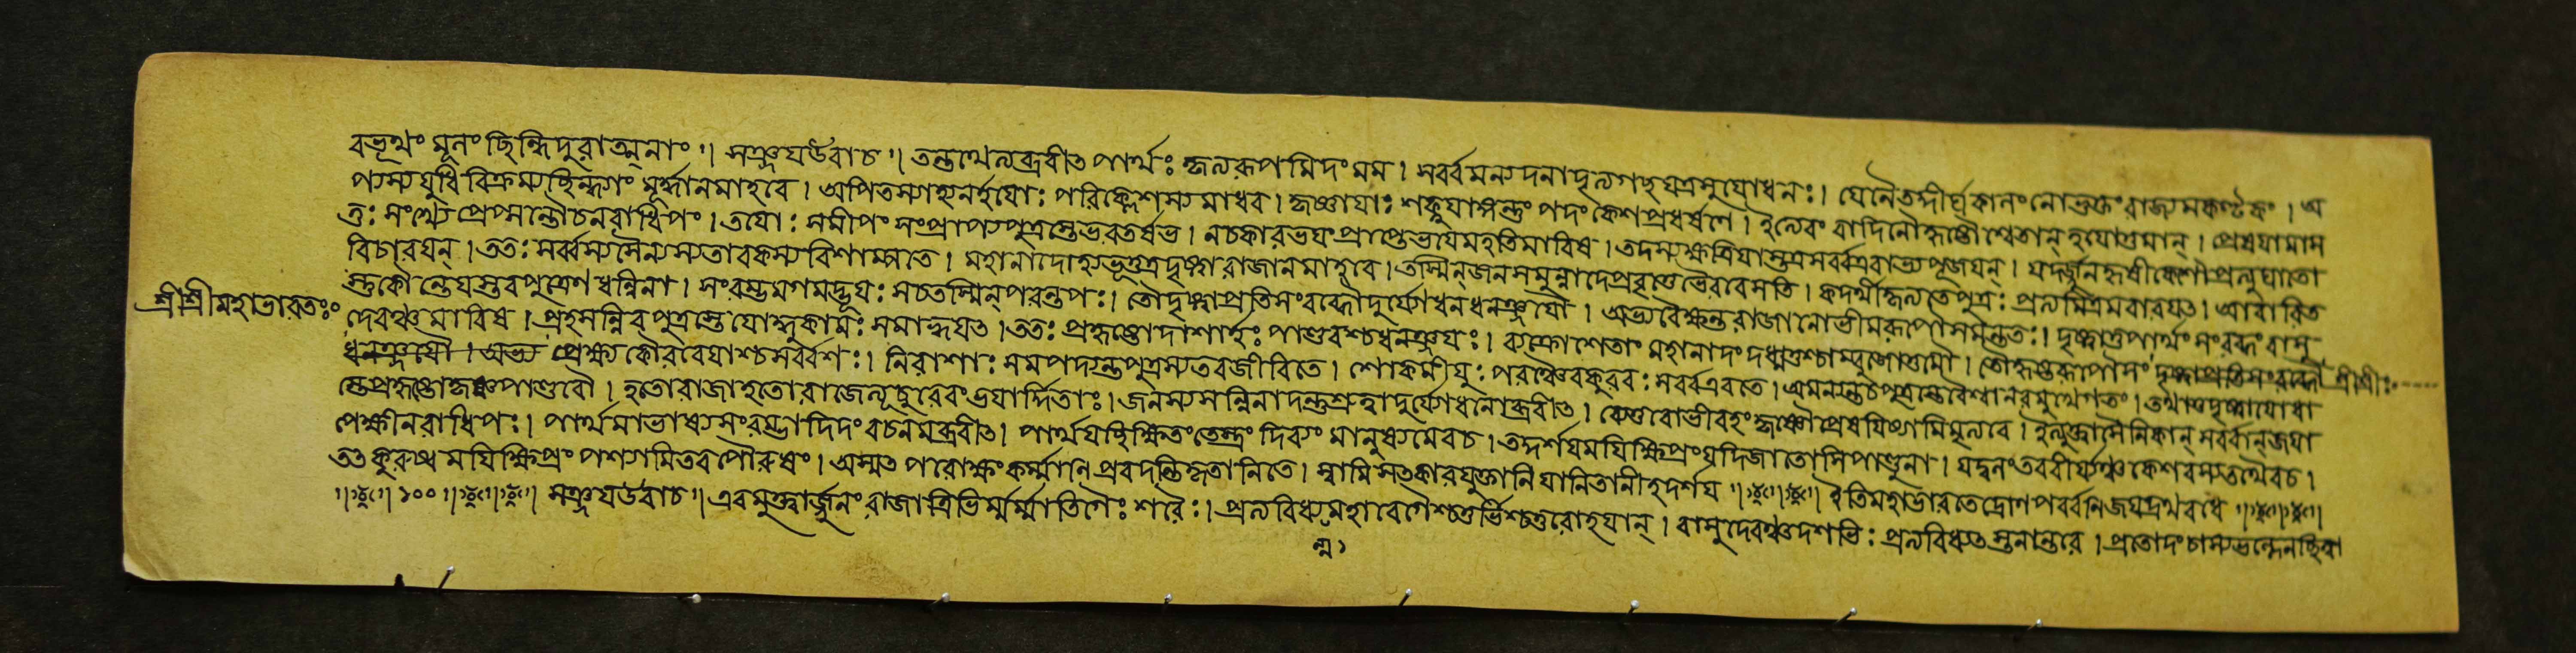 বভূথং মূনং ছিন্ধি দুরাত্মনাং ৷৷ সঞ্জয উবাচ ৷৷ তন্তথেত্যব্রবীৎ পার্থঃ কৃত্যরূপমিদং মম । সর্ব্বমন্যদনাদৃত্যগচ্ছ যত্র সুযোধনঃ । যেনৈতদ্দীর্ঘকালং নো ভুক্তং রাজ্যমকণ্টকং । অ
প্যস্য যুধি বিক্রম্য ছিন্দ্যাং মূর্দ্ধানমাহবে । অপি তস্য হ্যনর্হাযাঃ পরিক্লেশস্য মাধব । কৃষ্ণাযাঃ শক্নুযাং গন্তুং পদং কেশপ্রধর্ষণে । ইত্যেবং বাদিনৌ হৃষ্টৌ শ্বেতান্ হযোত্তমান্ । প্রেষযামাস
তুঃ সংখ্যে প্রেপ্সন্তৌ চ নরাধিপং । তযোঃ সমীপং সংপ্রাপ্য পুত্রস্তে ভরতর্ষভ । ন চকার ভযং প্রাপ্তে ভযে মহতি মারিষ । তদস্য ক্ষত্রিযাস্তত্র সর্ব্ব এবাভ্যপূজযন্ । যদর্জ্জুনহৃষীকেশৌ প্রত্যুদ্যাতো
বিচারযন্ । ততঃ সর্ব্বস্য সৈন্যস্য তাবকস্য বিশাম্পতে । মহানাদো হ্যভূত্তত্র দৃষ্ট্বা রাজানমাহবে । তস্মিন্ জনসমুন্নাদে প্রবৃত্তে ভৈরবে সতি । কদর্থীকৃত্য তে পুত্রঃ প্রত্যমিত্রমবারযৎ । আবারিত
স্তু কৌন্তেযস্তব পুত্রেণ ধন্বিনা । সংরম্ভমগমদ্ভূযঃ স চ তস্মিন্ পরন্তপঃ । তৌ দৃষ্ট্বা প্রতিসংরব্ধৌ দুর্যোধনধনঞ্জযৌ । অভ্যবৈক্ষন্ত রাজানো ভীমরূপৌ সমন্ততঃ । দৃষ্ট্বা তু পার্থং সংরব্ধং বাসু
শ্রীশ্রীমহাভারতঃ
দেবঞ্চ মারিষ । প্রহসন্নিব পুত্রস্তে যোদ্ধুকামঃ সমাহ্বযৎ । ততঃ প্রহৃষ্টো দাশার্হঃ পাণ্ডবশ্চ ধনঞ্জযঃ । ব্যক্রোশেতাং মহানাদং দধ্মতুশ্চাম্বুজোত্তমৌ । তৌ হৃষ্টরূপৌ সং দৃষ্ট্বা প্রতিসংরব্ধৌ শ্রীশ্রীঃ
ধনঞ্জযৌ । অভ্য প্রেক্ষ্য কৌরবেযাশ্চ সর্ব্বশঃ । নিরাশাঃ সমপদ্যন্ত পুত্রস্য তব জীবিতে । শোকমীযুঃ পরঞ্চৈব কুরবঃ সর্ব্ব এব তে । অমন্যন্ত চ পুত্রন্তে বৈশ্বানরমুখে গতং । তথা তু দৃষ্ট্বা যোধা
স্তে প্রহৃষ্টৌ কৃষ্ণপাণ্ডবৌ । হতো রাজা হতো রাজেত্যূচুরেবং ভযার্দ্দিতাঃ । জনস্য সন্নিনাদন্তু শ্রুত্বা দুর্যোধনোব্রবীৎ । ব্যেতু বো ভীরহং কৃষ্ণৌ প্রেষযিষ্যামি মৃত্যবে । ইত্যুক্ত্বা সৈনিকান্ সর্ব্বান্ জযা
পেক্ষী নরাধিপঃ । পার্থমাভাষ্য সংরম্ভাদিদং বচনমব্রবীৎ । পার্থ যচ্ছিক্ষিতং তেস্ত্রং দিব্যং মানুষ্যমেব চ । তদ্দর্শয মযি ক্ষিপ্রং যদি জাতোসি পাণ্ডুনা । যদ্বলং তব বীর্য্যঞ্চ কেশবস্য তথৈব চ ।
তৎ কুরুষ্ব মযি ক্ষিপ্রং পশ্যামি তব পৌরুষং । অস্মৎ পরোক্ষং কর্ম্মাণি প্রবদন্তি কৃতানি তে । স্বামিসৎকারযুক্তানি যানি তানীহ দর্শয ৷৷ ইতি মহাভারতে দ্রোণপর্ব্বনি জযদ্রথবধে ৷৷
৷৷ ১০০ ৷৷ সঞ্জয উবাচ ৷৷ এবমুক্ত্বার্জ্জুনং রাজা ত্রিভির্ম্মর্ম্মাতিগৈঃ শরৈঃ । প্রত্যবিধ্যন্মহাবেগৈশ্চতুর্ভিশ্চতুরো হযান্ । বাসুদেবঞ্চ দশভিঃ প্রত্যবিধ্যৎ স্তনান্তরে । প্রতোদং চাস্য ভল্লেন ছিত্বা